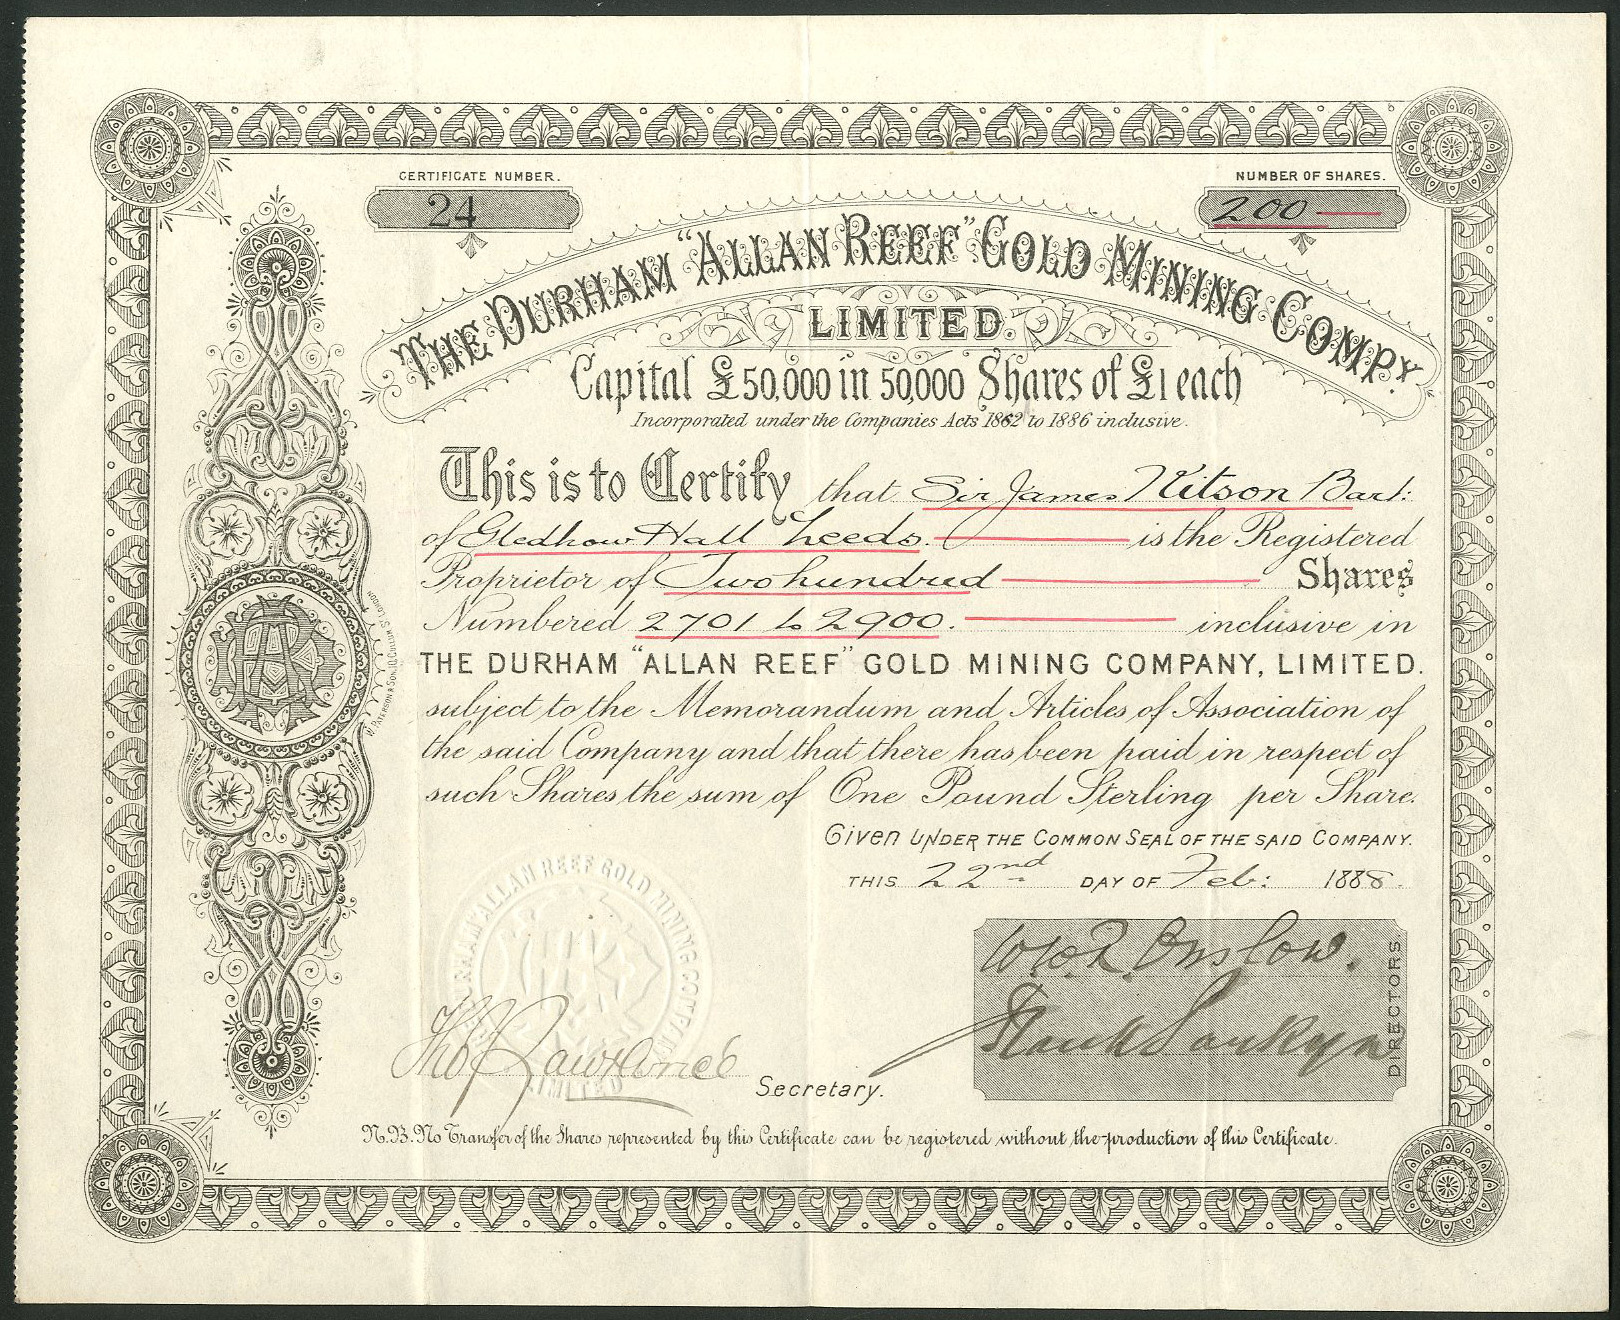 CERTIFICATE NUMBER.
24
NUMBER OF SHARES.
200
THE DURHAM "ALLAN REEF" GOLD MINING COMPY.
LIMITED.
Capital £50,000 in 50,000 Shares of £1 each
Incorporated under the Companies Acts 1862 to 1886 inclusive.
This is to Certify that Sir James Kitson Bart:
of Gledhow Hall Leeds. is the Registered
Proprietor of Two hundred Shares
Numbered 2701 to 2900. inclusive in
THE DURHAM "ALLAN REEF" GOLD MINING COMPANY, LIMITED.
subject to the Memorandum and Articles of Association of
the said Company and that there has been paid in respect of
such Shares the sum of One Pound Sterling per Share.
Given UNDER THE COMMON SEAL OF THE SAID COMPANY.
THIS 22nd DAY OF Feb: 1888.
DURHAM "ALLAN REEF GOLD MINING COMPANY
LIMITED
Onslow.
DIRECTORS.
Secretary.
N.B. No Transfer of the Shares represented by this Certificate can be registered without the production of this Certificate.